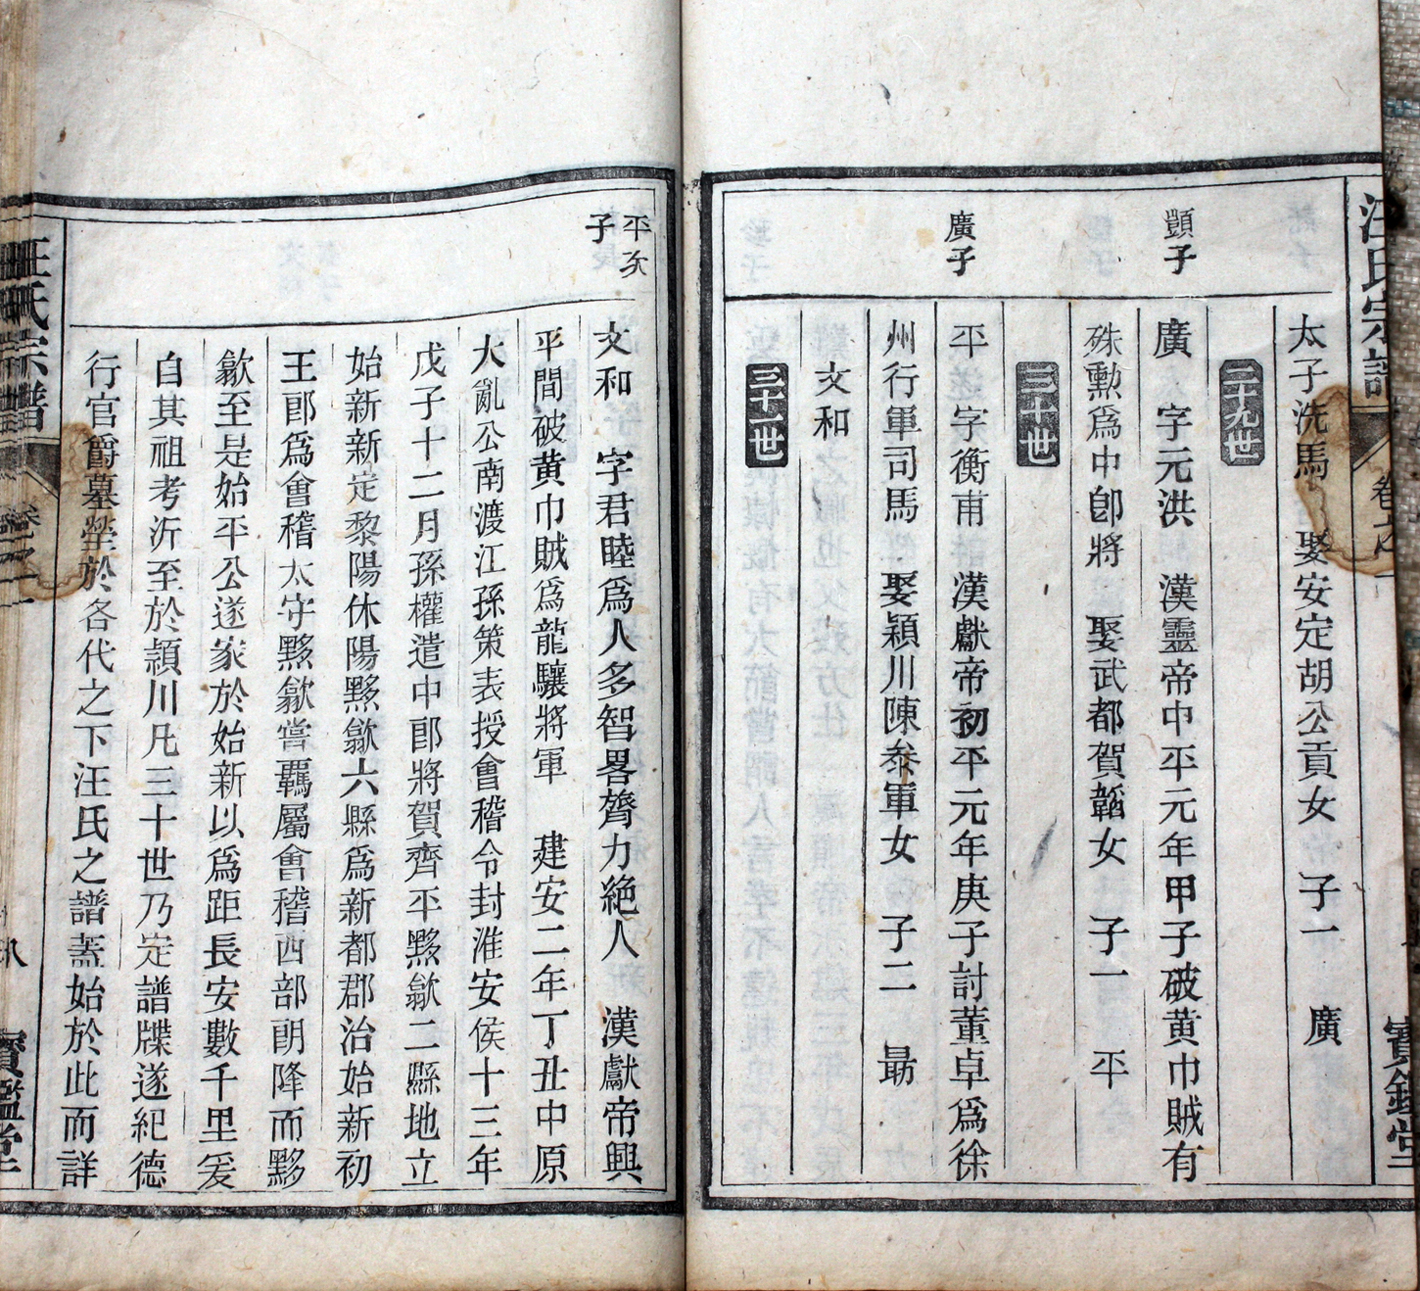 汪氏宗譜
卷之一
寶鑑堂
太子洗馬 娶安定胡公貢女 子一 廣
二十九世
顗子
廣 字元洪 漢靈帝中平元年甲子破黄巾賊有
殊勳爲中卽將 娶武都賀韜女 子一 平
三十世
廣子
平 字衡甫 漢獻帝初平元年庚子討董卓爲徐
州行軍司馬 娶潁川陳叅軍女 子二 勗
文和
三十一世
平次
子
文和 字君睦爲人多智畧膂力絶人 漢獻帝興
平間破黄巾賊爲龍驤將軍 建安二年丁丑中原
大亂公南渡江孫策表授會稽令封淮安侯十三年
戊子十二月孫權遣中郎將賀齊平黟歙二縣地立
始新新定黎陽休陽黟歙六縣爲新都郡治始新初
王郎爲會稽太守黟歙嘗覊屬會稽西部朗降而黟
歙至是始平公遂家於始新以爲距長安數千里爰
自其祖考沂至於潁川凡三十世乃定譜牒遂紀德
行官爵墓塋於各代之下汪氏之譜蓋始於此而詳
汪氏宗譜
卷之一
寶鑑堂